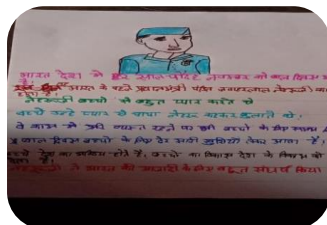 भारत देश में हर साल चौदह नवम्बर को बाल दिवस
है।
भारत के पहले प्रधानमंत्री पंडित जवाहरलाल नेहरूजी का
होता है।
नेहरूजी बच्चों से बहुत प्यार करते थे
बच्चे उन्हें प्यार से चाचा नेहरू कहकर बुलाते थे।
ते काम में अति व्यस्त रहने पर भी बच्चों के लिए
बाल दिवस बच्चों के लिए ढेर सारी खुशियाँ लेकर आता है।
देश का भविष्य होते हैं, बच्चों का विकास देश के विकास
नेहरूजी ने भारत की आजादी के लिए बहुत संघर्ष किया